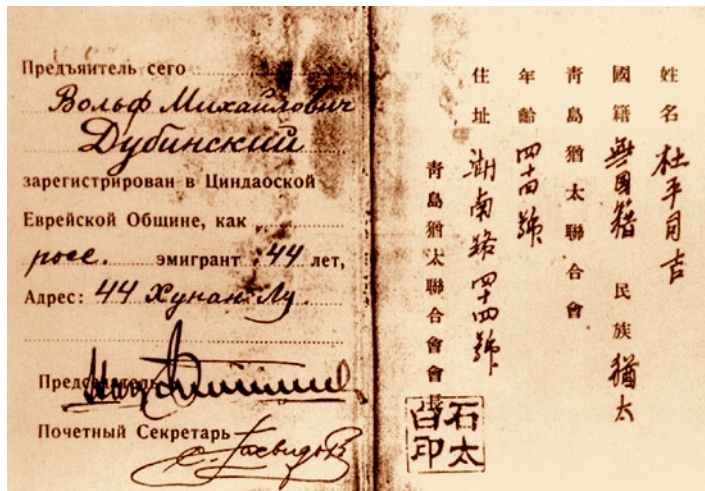 Предъявитель сего
Вольф Михайлович
Дубинский
зарегистрирован в Циндаоской
Еврейской Общине, как
росс. эмигрант 44 лет,
Адрес: 44 Хунан Лу
Председатель
Почетный Секретарь
姓名 杜平司吉
國籍 無国籍 民族 猶太
青島猶太聯合會
年齡 四十四號
住址 湖南路四十四號
青島猶太聯合會會長
石太
白印